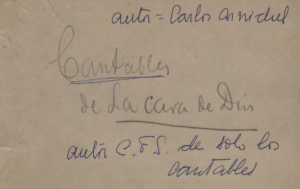 autor = Carlos Arniches
Cantables
de La cara de Dios
autor C.F.S. de solo los
cantables